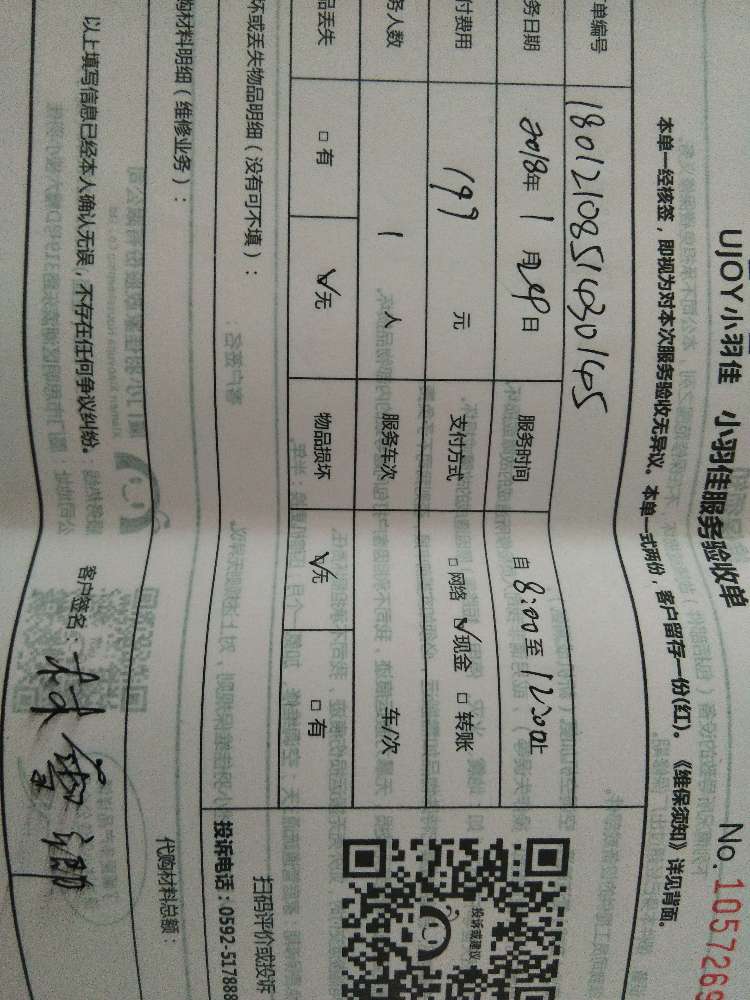 UJOY小羽佳 小羽佳服务验收单
No. 1057269
本单一经核签，即视为对本次服务验收无异议。本单一式两份，客户留存一份(红)。《维保须知》详见背面。
单编号 18012108514301405
务日期 2018年 1月29日 服务时间 自 8:00至 12:00止
付费用 199 元 支付方式 □网络 ☑现金 □转账
务人数 1 人 服务车次 车/次
品丢失 □有 ☑无 物品损坏 ☑无 □有
坏或丢失物品明细（没有可不填）：
投诉或建议
扫码评价或投诉
投诉电话：0592-517888
购材料明细（维修业务）：
代购材料总额：
以上填写信息已经本人确认无误，不存在任何争议纠纷。
客户签名：林